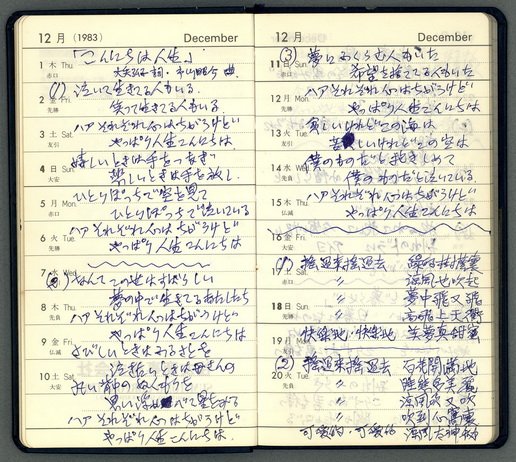 12 月 (1983) December
「こんにちは人生」
1 木 Thu 赤口
(1) 泣いて生きてる人もいる
2 金 Fri 先勝
笑って生きてる人もいる
ハア それぞれ人はちがうけど
3 土 Sat 友引
やっぱり人生こんにちは
嬉しいときは手をつなぎ
4 日 Sun 大安
悲しいときは手を放し
5 月 Mon 赤口
ひとりぼっちで空を見て
ひとりぼっちで泣いている
6 火 Tue 先勝
ハア それぞれ人はちがうけど
やっぱり人生こんにちは
7 水 Wed
(2) なんてこの世はすばらしい
8 木 Thu 先負
夢の中で生きてるあたしたち
ハア それぞれ人はちがうけど
9 金 Fri 仏滅
やっぱり人生こんにちは
さびしいときはふるさとを
10 土 Sat 大安
泣きたいときは母さんの
ハア それぞれ人はちがうけど
やっぱり人生こんにちは
12 月 December
11 日 Sun 赤口
(3) 夢にふくらむ人もいた
希望を捨ててる人もいた
12 月 Mon 先勝
ハア それぞれ人はちがうけど
やっぱり人生こんにちは
13 火 Tue 友引
貧しいけれどこの海は
苦しいけれどこの空は
14 水 Wed 先負
僕のものだと抱きしめて
僕のものだと泣いている
15 木 Thu 仏滅
ハア それぞれ人はちがうけど
やっぱり人生こんにちは
16 金 Fri
(1) 搖過來搖過去
17 土 Sat
〃 涼風吹起
〃 夢中飛又飛
18 日 Sun 先勝
〃
19 月 Mon 友引
快樂地・快樂地
(2) 搖過來搖過去
20 火 Tue 先負
〃
〃 涼風吹又吹
〃